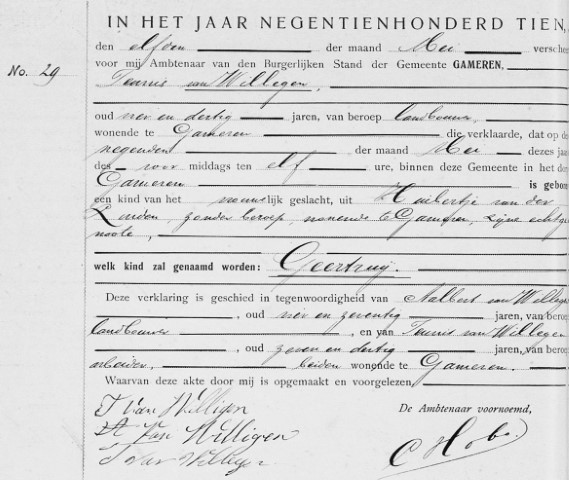 IN HET JAAR NEGENTIENHONDERD TIEN,
den elfden der maand Mei versche
voor mij Ambtenaar van den Burgerlijken Stand der Gemeente GAMEREN,
No. 29
Teunis van Willegen,
oud vier en dertig jaren, van beroep landbouwer
wonende te Gameren die verklaarde, dat op de
negenden der maand Mei dezes jaa
des voor middags ten elf ure, binnen deze Gemeente in het de
Gameren is gebor
een kind van het vrouwelijk geslacht, uit Huibertje van der
Linden, zonder beroep, wonende te Gameren, zijne echtge
noote,
welk kind zal genaamd worden: Geertruij.
Deze verklaring is geschied in tegenwoordigheid van Aalbert van Willege
, oud vier en zeventig jaren, van beroe
landbouwer, en van Teunis van Willegen
, oud zeven en dertig jaren, van beroe
arbeider, beiden wonende te Gameren.
Waarvan deze akte door mij is opgemaakt en voorgelezen,
T Van Willigen
De Ambtenaar voornoemd,
A Van Willigen
T van Willegen
C